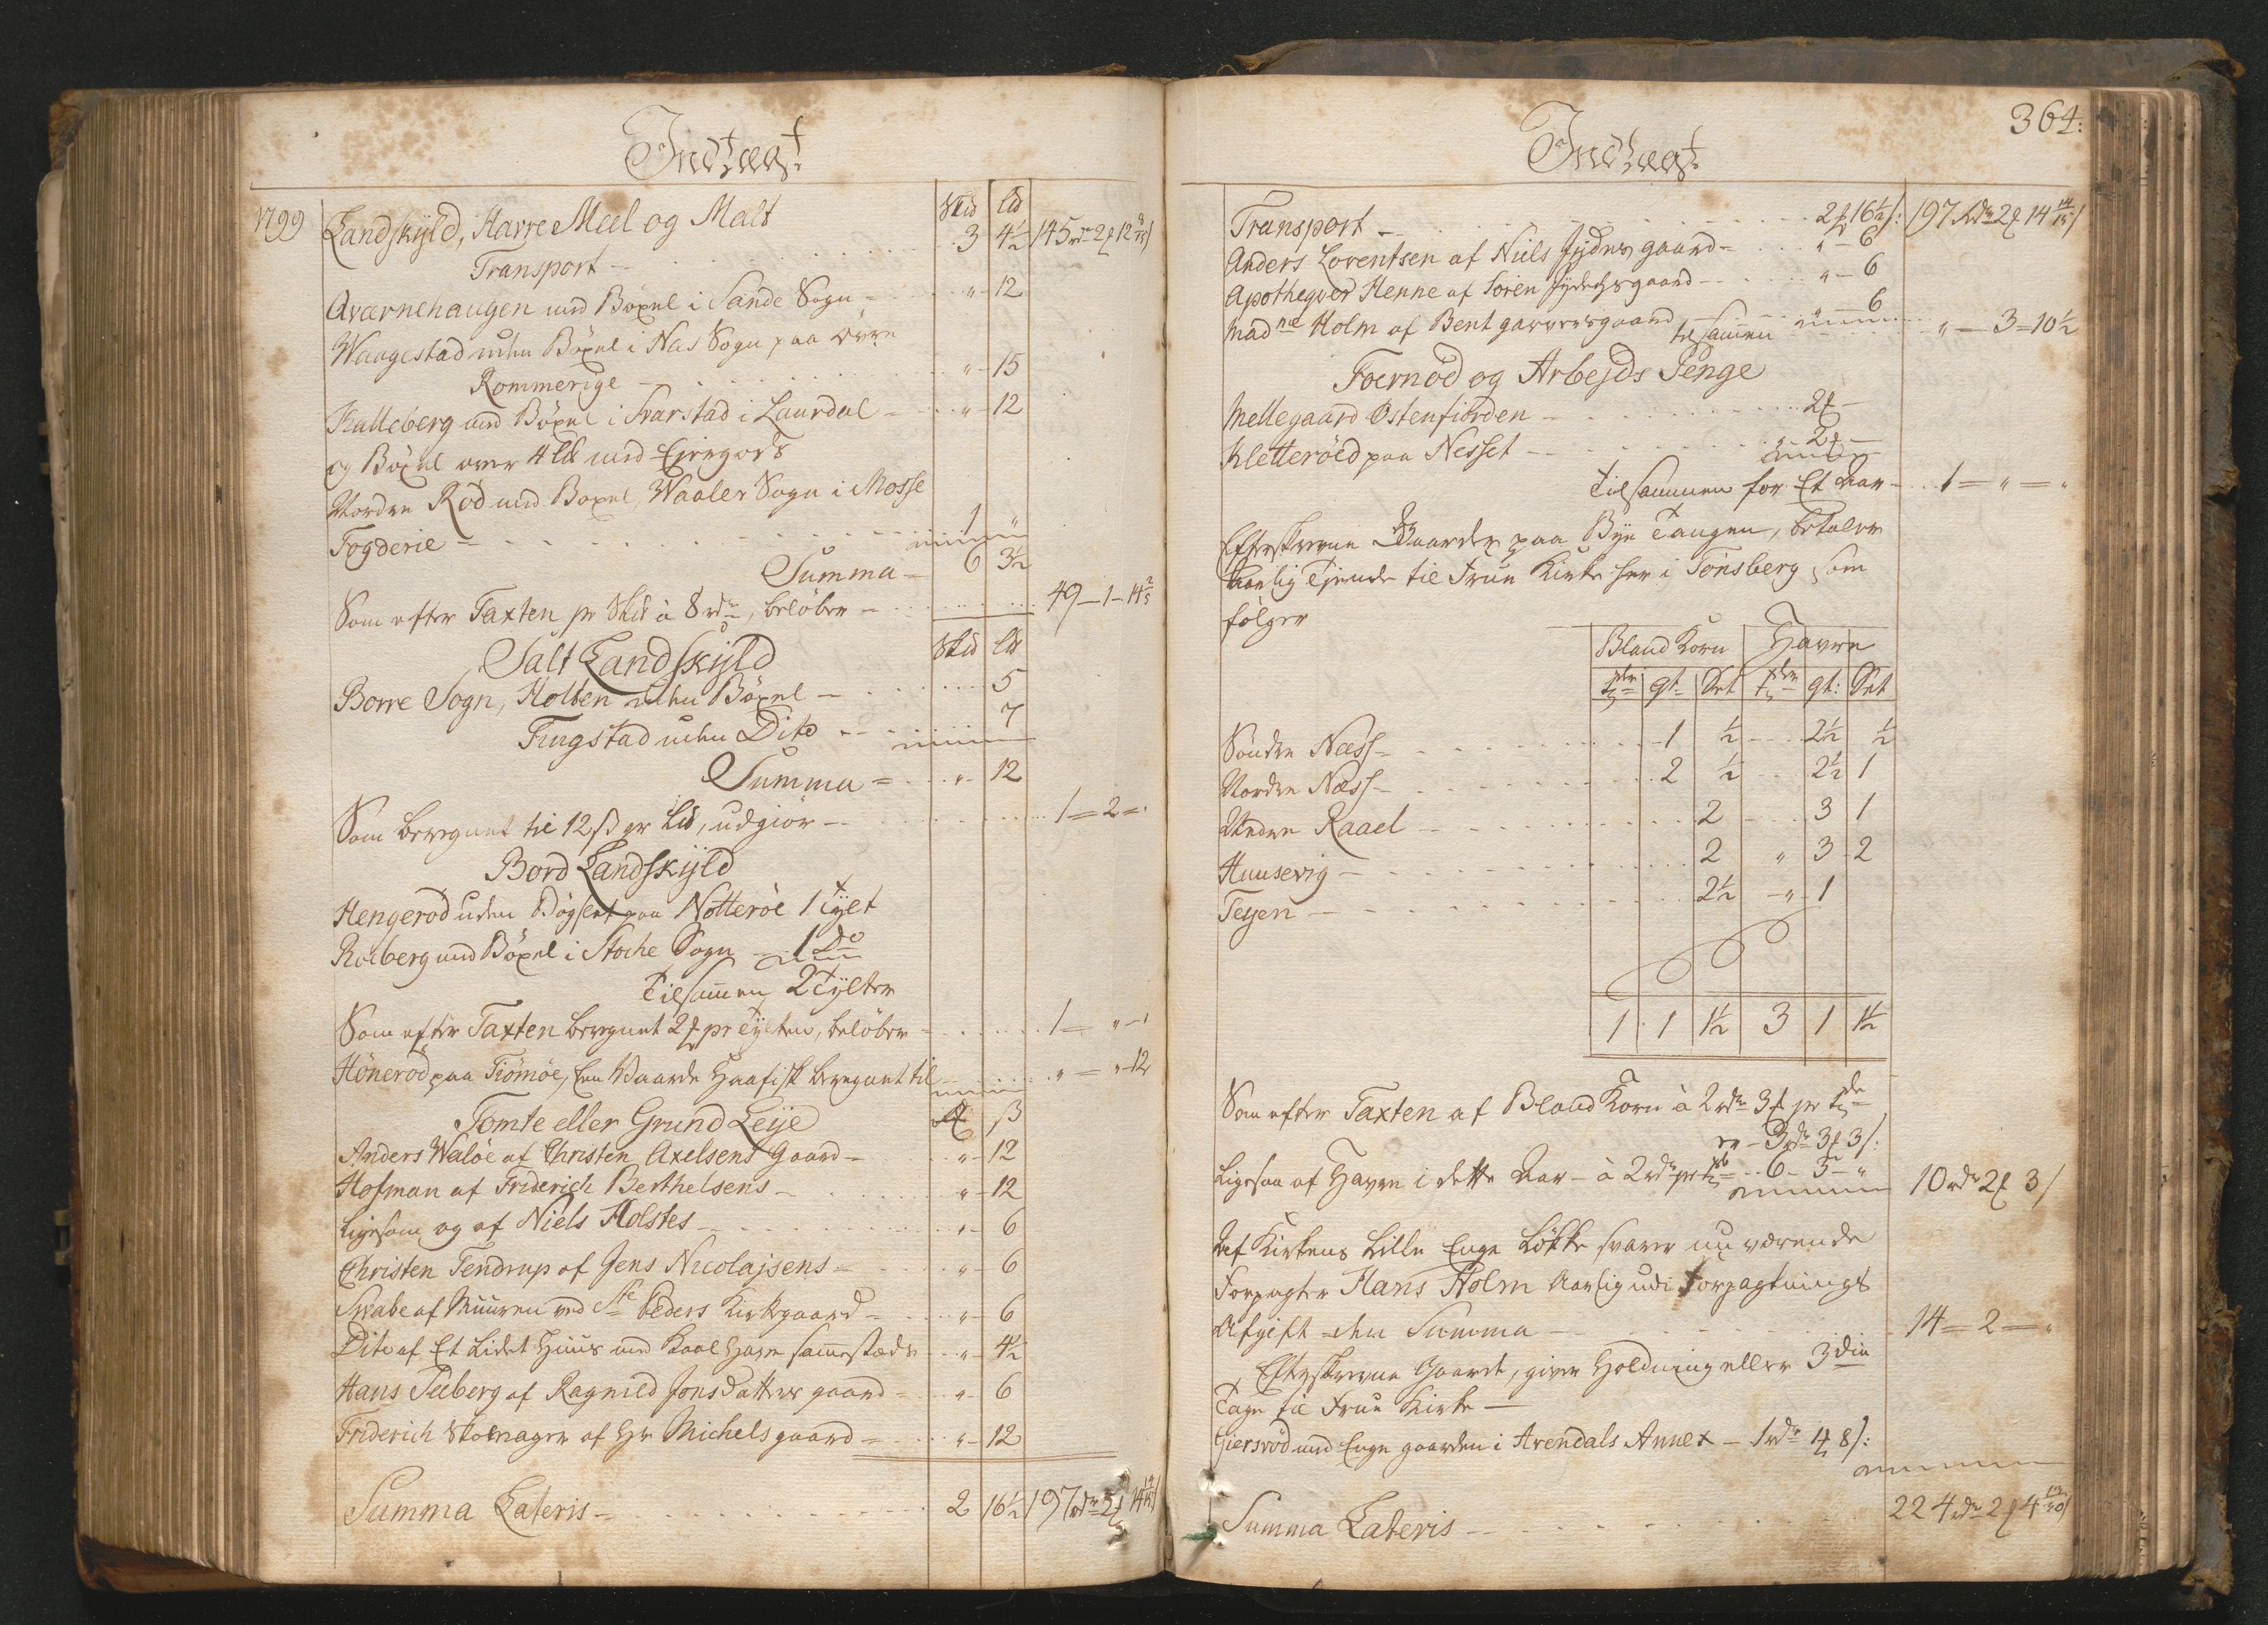 Indtægt
1799 Landskyld, Harre Meel og Malt Skd Ld
Transport 3 4½ 145 rdr 2 12
Qværnehaugen med Böxel i Sande Sogn " 12
Waagestad uden Böxel i Nas Sogn paa Övre
Rommerige " 15
Kalleberg med Böxel i Svarstad i Laurdal " 12
og Böxel over 4 Ld med Eiegods
Nordre Röd med Boxel, Waaler Sogn i Mosse
Fogderie 1 "
Summa 6 3½
Som efter Taxten pr Skd à 8 rdr, belöber 49 - 1 - 14 2/5
Salt Landskyld Skd Ld
Borre Sogn, Holten uden Böxel 5
Fingstad uden Dito 7
Summa " 12
Som beregnet til 12 ß pr Ld, udgiör 1 = 2 = "
Bord Landskyld
Hengeröd uden Bögsel paa Nötteröe 1 Tylt
Roeberg med Böxel i Stoche Sogn 1 Do
Tilsammen 2 Tylter
Som efter Taxten beregnet 2 pr Tylten, belöber 1 = " - "
Hönerod paa Tiömöe, Een Waarde Haafisk beregnet til " = " - 12
Tomte eller Grund Leye ß
Anders Walöe af Christen Axelsens Gaard " 12
Hofman af Friderich Berthelsens " 12
Ligesom og af Niels Holstes " 6
Christen Tendrup af Jens Nicolajsens " 6
Swabe af Muuren ved Ste Peders Kirkegaard " 6
Dito af Et Lidet Huus med Kaal Have sammestæds " 4½
Hans Seeberg af Ragnild Jonsdatters gaard " 6
Friderich Skomager af Hr Michels gaard " 12
Summa Lateris 2 16½ 197 rdr 2 14 14/15
364:
Indtægt
Transport 2 16½ 197 rdr 2 14 14/15
Anders Lorentsen af Niels Jydes gaard " 6
Apothequer Henne af Sören gaard " 6
Madme Holm af Bent gaard " 6
tilsammen " 3 = 10½
Foernöd og Arbejds Penge
Mellegaard Östenfiörden 2
Kletteröed paa Nesset 2
Tilsammen for Et Aar 1 = " = "
Efterskrevne Gaarder paa Bye Tangen, betaler
aarlig Tiende til Frue Kirke her i Tönsberg som
fölger
Bland Korn Havre
qt Set qt: Set
Söndre Næss 1 ½ 2½ ½
Nordre Næss 2 ½ 2½ 1
Nedre Raael 2 3 1
Huusevig 2 " 3 2
Teyen 2½ " 1
1 1 1½ 3 1 1½
Som efter Taxten af Bland Korn à 2 rdr 3 pr
er - 3 rdr 3 3
Ligesaa af Havre i dette Aar à 2 rdr pr 6 - 3 - " 10 rdr 2 3
Af Kirkens Lille Enge Lökke svarer nu værende
Forpagter Hans Holm Aarlig udi Forpagtnings
Afgift den Summa 14 = 2 = "
Efterskrevne Gaarde, giver Holdning eller 3die
Tage til Frue Kirke
Giersröd med Enge gaarden i Arendals Annex - 1 rdr 1 8
Summa Lateris 224 rdr 2 4